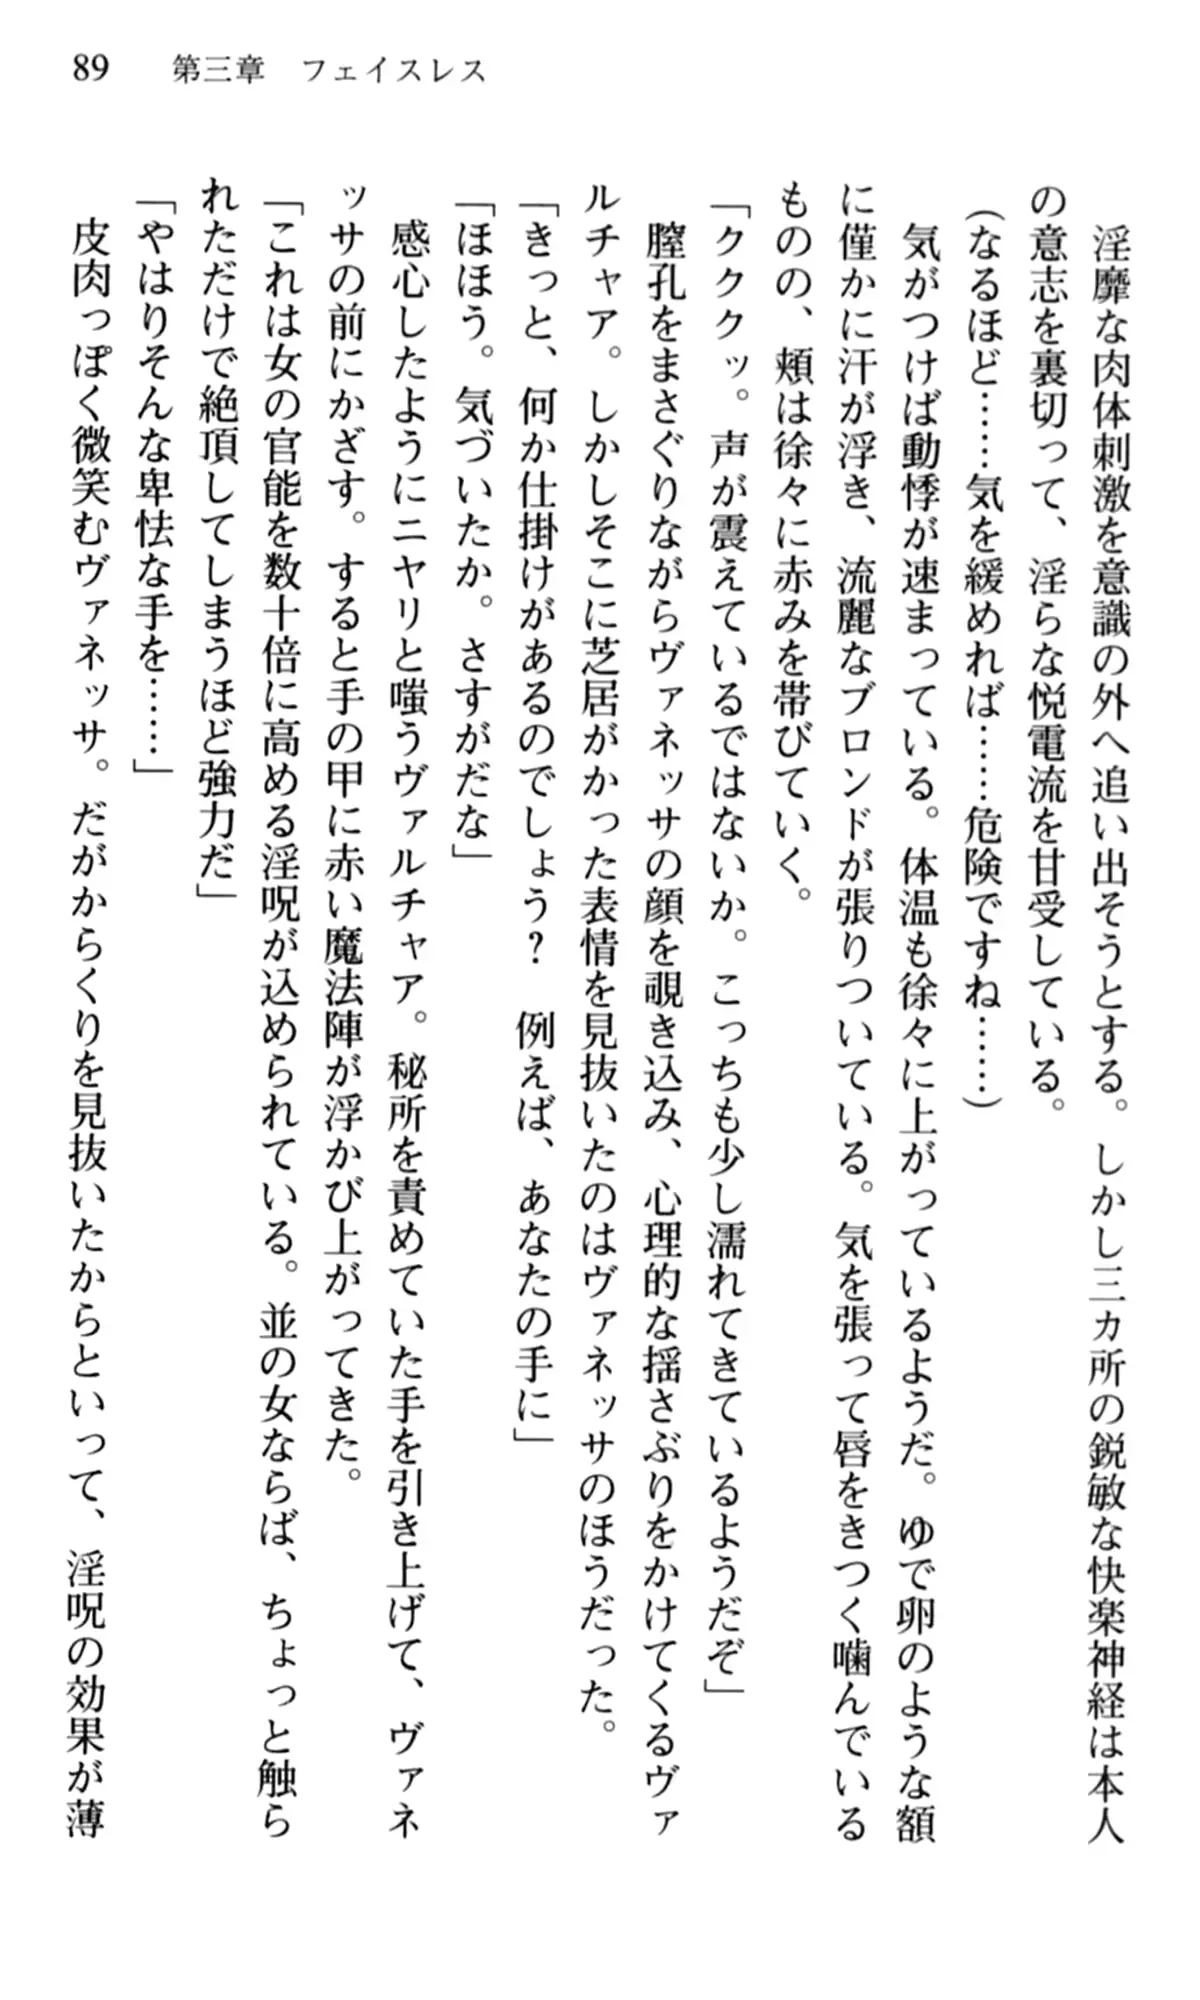 89　第三章　フェイスレス
　淫靡な肉体刺激を意識の外へ追い出そうとする。しかし三カ所の鋭敏な快楽神経は本人
の意志を裏切って、淫らな悦電流を甘受している。
（なるほど……気を緩めれば……危険ですね……）
　気がつけば動悸が速まっている。体温も徐々に上がっているようだ。ゆで卵のような額
に僅かに汗が浮き、流麗なブロンドが張りついている。気を張って唇をきつく噛んでいる
ものの、頬は徐々に赤みを帯びていく。
「クククッ。声が震えているではないか。こっちも少し濡れてきているようだぞ」
　膣孔をまさぐりながらヴァネッサの顔を覗き込み、心理的な揺さぶりをかけてくるヴァ
ルチャア。しかしそこに芝居がかった表情を見抜いたのはヴァネッサのほうだった。
「きっと、何か仕掛けがあるのでしょう？　例えば、あなたの手に」
「ほほう。気づいたか。さすがだな」
　感心したようにニヤリと嗤うヴァルチャア。秘所を責めていた手を引き上げて、ヴァネ
ッサの前にかざす。すると手の甲に赤い魔法陣が浮かび上がってきた。
「これは女の官能を数十倍に高める淫呪が込められている。並の女ならば、ちょっと触ら
れただけで絶頂してしまうほど強力だ」
「やはりそんな卑怯な手を……」
　皮肉っぽく微笑むヴァネッサ。だがからくりを見抜いたからといって、淫呪の効果が薄